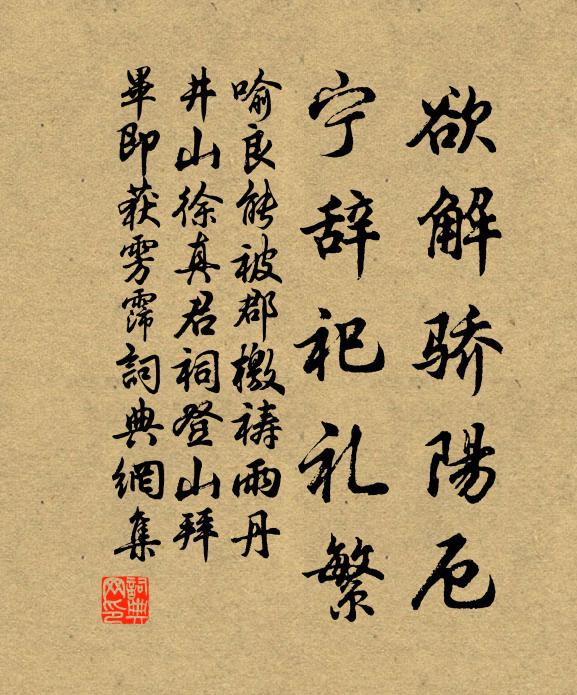 欲解骄陽厄
宁辞祀礼繁
喻良能被郡檄祷雨丹
井山徐真君祠登山拜
畢即获雱霈詞典網集
詞典
网印